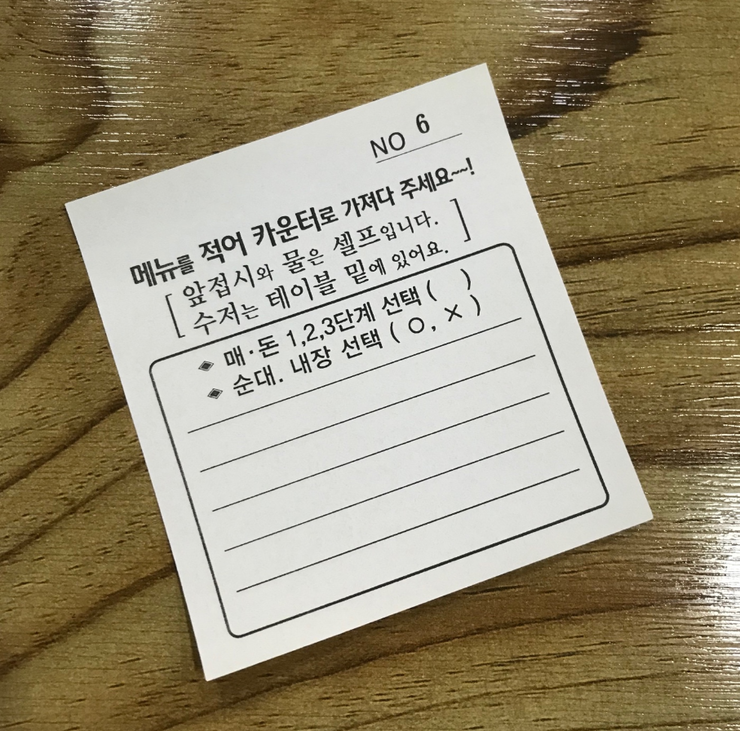 NO 6
메뉴를 적어 카운터로 가져다 주세요~~!
[ 앞접시와 물은 셀프입니다.
수저는 테이블 밑에 있어요. ]
◈ 매·돈 1,2,3단계 선택 (   )
◈ 순대. 내장 선택 ( ○, × )